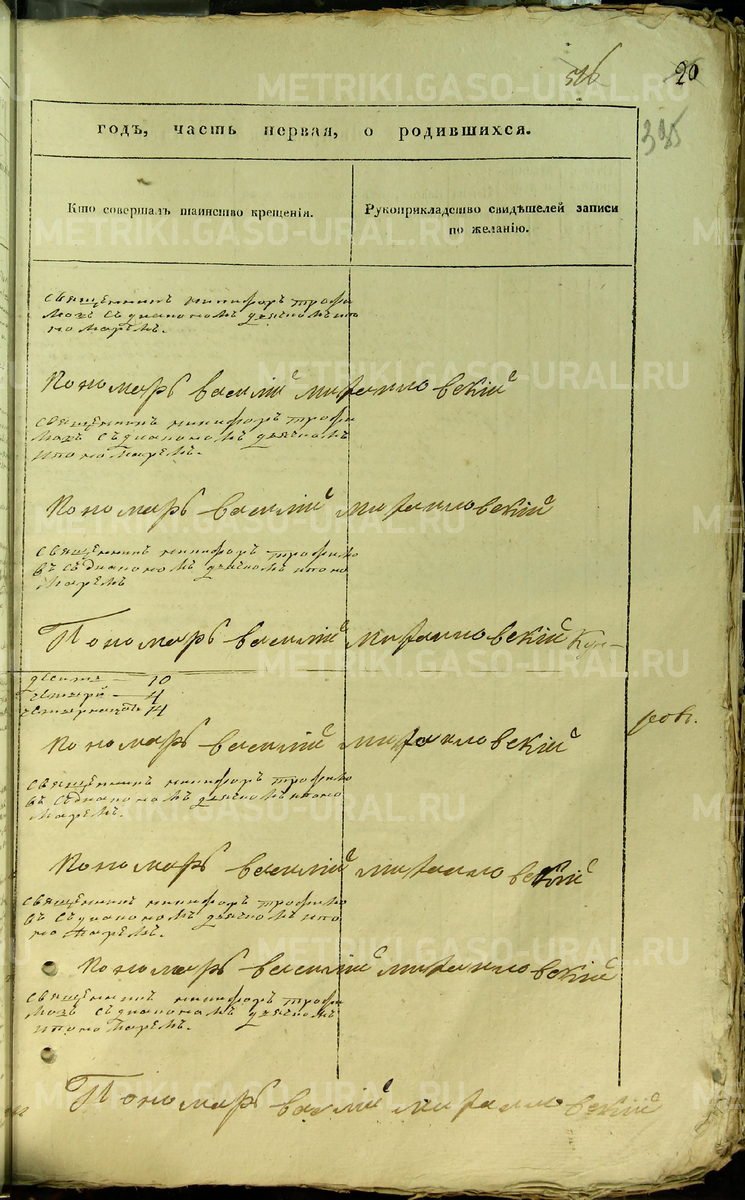 526
20
335
годъ, часть первая, о родившихся.
Кто совершалъ таинство крещенія.
Рукоприкладство свидѣтелей записи
по желанію.
священникъ никифоръ трофи
мовъ съ диакономъ дьячкомъ ипо
номаремъ.
Пономарь василий михаиловский
священникъ никифоръ трофи
мовъ съ диакономъ дьячкомъ
ипономаремъ.
Пономарь василий михаиловский
священникъ никифоръ трофимо
въ съ диакономъ дьячкомъ ипоно
маремъ
Пономарь василий михаиловский
десять — 10
четыре — 4
четырнадцать 14
Пономарь василий михаиловский
священникъ никифоръ трофимо
въ съ диакономъ дьячкомъ ипоно
маремъ.
Пономарь василий михаиловский
священникъ никифоръ трофимо
въ съ диакономъ дьячкомъ ипо
номаремъ.
Пономарь василий михаиловский
священникъ никифоръ трофи
мовъ съ диакономъ дьячкомъ
ипономаремъ.
Пономарь василий михаиловский
METRIKI.GASO-URAL.RU